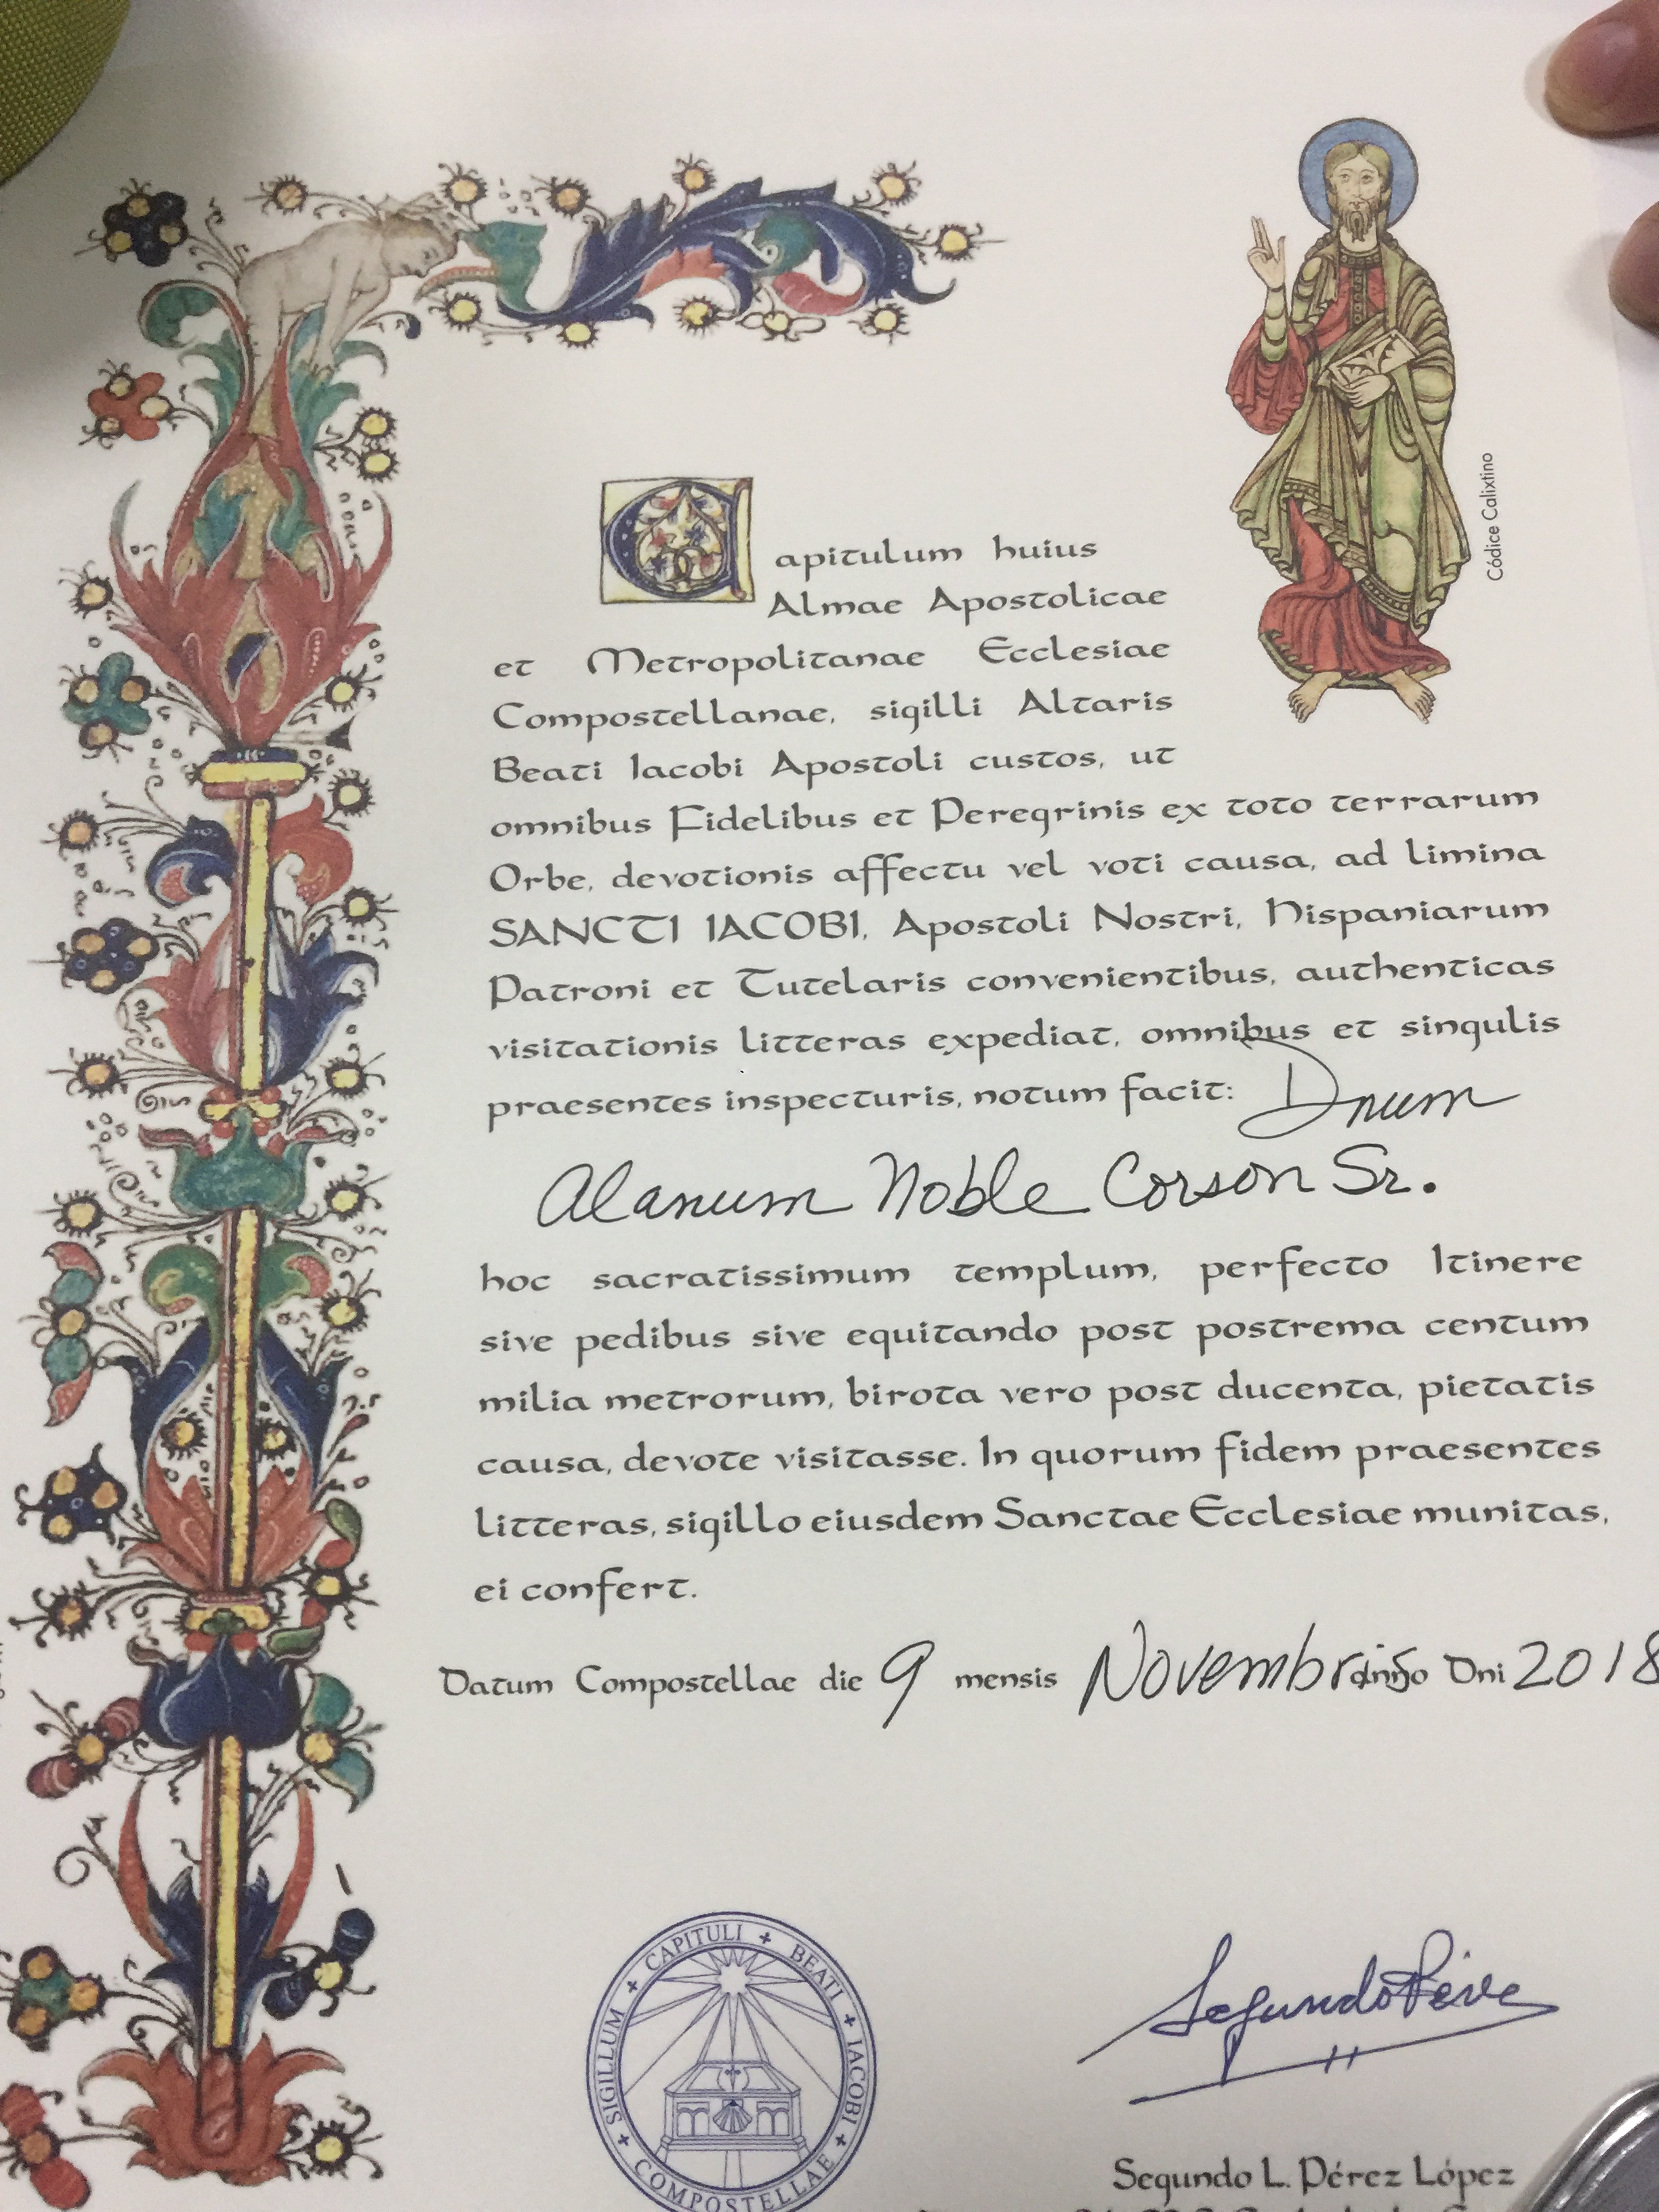 Códice Calixtino
Capitulum huius
Almae Apostolicae
et Metropolitanae Ecclesiae
Compostellanae, sigilli Altaris
Beati Iacobi Apostoli custos, ut
omnibus Fidelibus et Peregrinis ex toto terrarum
Orbe, devotionis affectu vel voti causa, ad limina
SANCTI IACOBI, Apostoli Nostri, Hispaniarum
Patroni et Tutelaris convenientibus, authenticas
visitationis litteras expediat, omnibus et singulis
praesentes inspecturis, notum facit: Dnum
Alanum Noble Corson Sr.
hoc sacratissimum templum, perfecto Itinere
sive pedibus sive equitando post postrema centum
milia metrorum, birota vero post ducenta, pietatis
causa, devote visitasse. In quorum fidem praesentes
litteras, sigillo eiusdem Sanctae Ecclesiae munitas,
ei confert.
Datum Compostellae die 9 mensis Novembris anno Dni 2018
SIGILLUM + CAPITULI + BEATI + IACOBI + COMPOSTELLAE +
Segundo Pérez
Segundo L. Pérez López